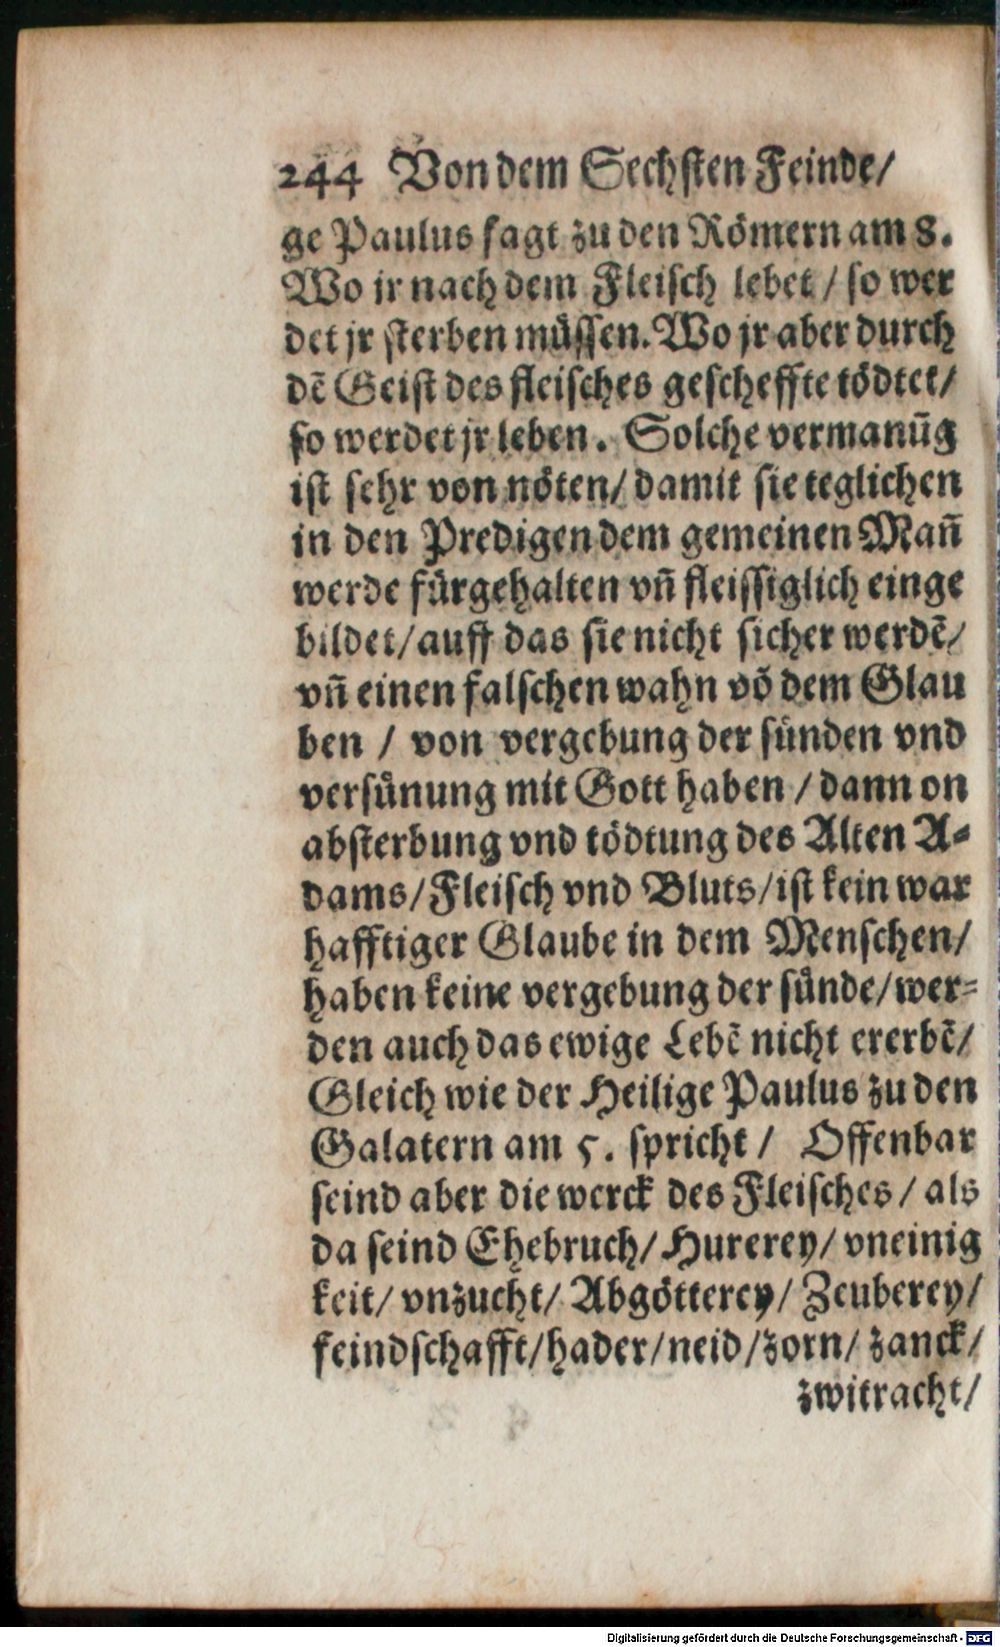 244 Von dem Sechsten Feinde/
ge Paulus sagt zu den Römern am 8.
Wo ir nach dem Fleisch lebet / so wer
det jr sterben müssen. Wo jr aber durch
dẽ Geist des fleisches gescheffte tödtet/
so werdet jr leben. Solche vermanũg
ist sehr von nöten/ damit sie teglichen
in den Predigen dem gemeinen Mañ
werde fürgehalten vñ fleissiglich einge
bildet/ auff das sie nicht sicher werdẽ/
vñ einen falschen wahn võ dem Glau
ben / von vergebung der sünden vnd
versünung mit Gott haben / dann on
absterbung vnd tödtung des Alten A-
dams/ Fleisch vnd Bluts/ ist kein war
hafftiger Glaube in dem Menschen/
haben keine vergebung der sünde/ wer-
den auch das ewige Lebẽ nicht ererbẽ/
Gleich wie der Heilige Paulus zu den
Galatern am 5. spricht / Offenbar
seind aber die werck des Fleisches / als
da seind Ehebruch/ Hurerey/ vneinig
keit/ vnzucht/ Abgötterey/ Zeuberey/
feindschafft/ hader/ neid/ zorn/ zanck/
zwitracht/
Digitalisierung gefördert durch die Deutsche Forschungsgemeinschaft - DFG